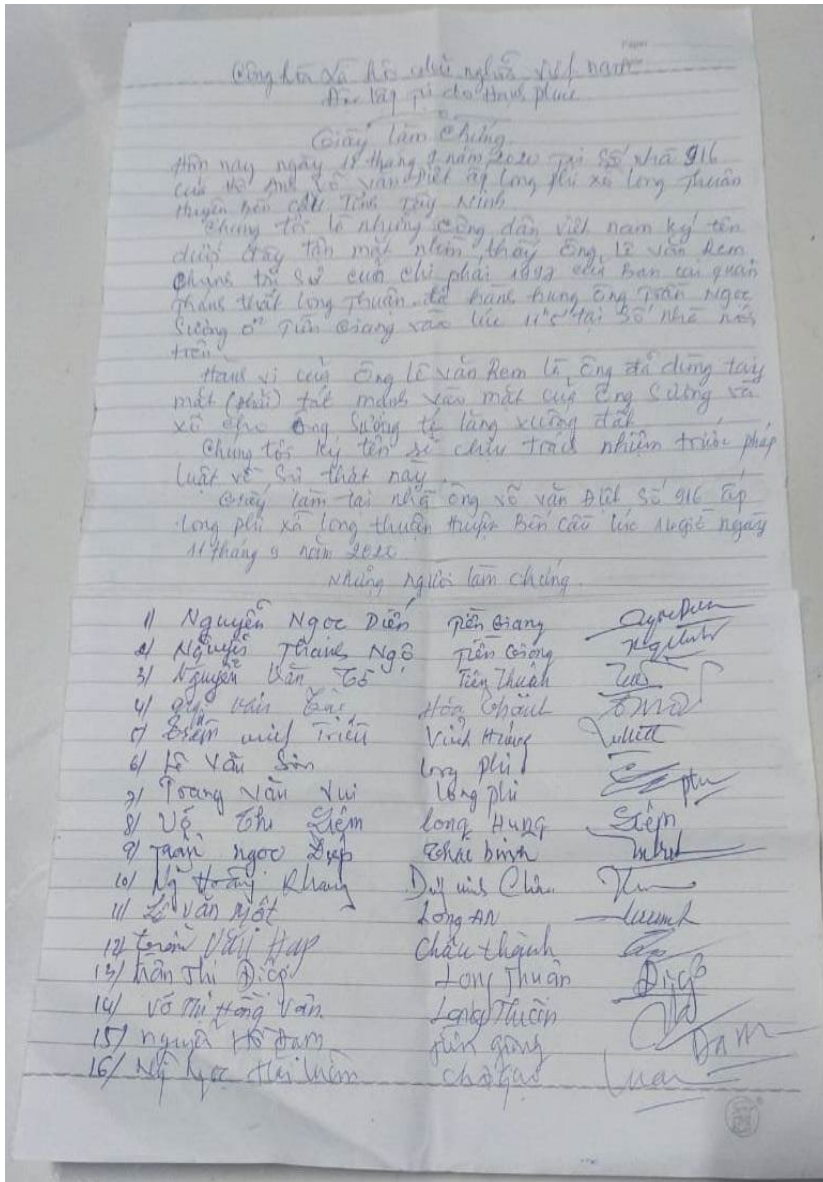 Cộng hòa xã hội chủ nghĩa việt nam
Độc lập tự do Hạnh phúc
Giấy làm chứng
Hôm nay ngày 11 tháng 9 năm 2020 Tại Số nhà 916
của Võ văn ấp Long phi xã long Thuận
Huyện Bến Cầu Tỉnh Tây Ninh
Chúng tôi là những công dân việt nam ký tên
dưới đây tận mặt nhìn thấy ông Lê văn Rem
chánh trị sự của chi phái 1997 của Ban cai quản
thánh thất Long Thuận đã hành hung ông Trần Ngọc
Sương ở Tiền Giang vào lúc tại số nhà nói
trên
Hành vi của ông Lê văn Rem là ông đã dùng tay
mặt (phải) tát mạnh vào mặt của ông Sương và
xô cho ông Sương té lăng xuống đất
Chúng tôi ký tên sẽ chịu trách nhiệm trước pháp
luật về sự thật này.
Giấy làm tại nhà ông võ văn số 916 ấp
Long phi xã long thuận huyện Bến cầu lúc giờ ngày
11 tháng 9 năm 2020
Những người làm chứng.
1/ Nguyễn Ngọc Diễn Tiền Giang
2/ Nguyễn Thanh Ngộ Tiền Giang
3/ Nguyễn Văn Tiên Thuận
4/ văn
5/ minh Triều
6/ Lê Văn Sơn long phi
7/ Trang Văn Vui long phi
8/ Võ Thị Liêm Long Hưng Liêm
9/ Trần ngọc Diệp Thái bình
10/ Ng Hoàng Khang
11/ Lê Văn Một Long AN
12/ Trần Văn Hạp Châu thành
13/ Trần Thị Long Thuận
14/ Võ Thị Hồng Vân Long Thuận
15/ nguyễn Đam Tiền giang Đam
16/ Ng Ngọc chợ gạo